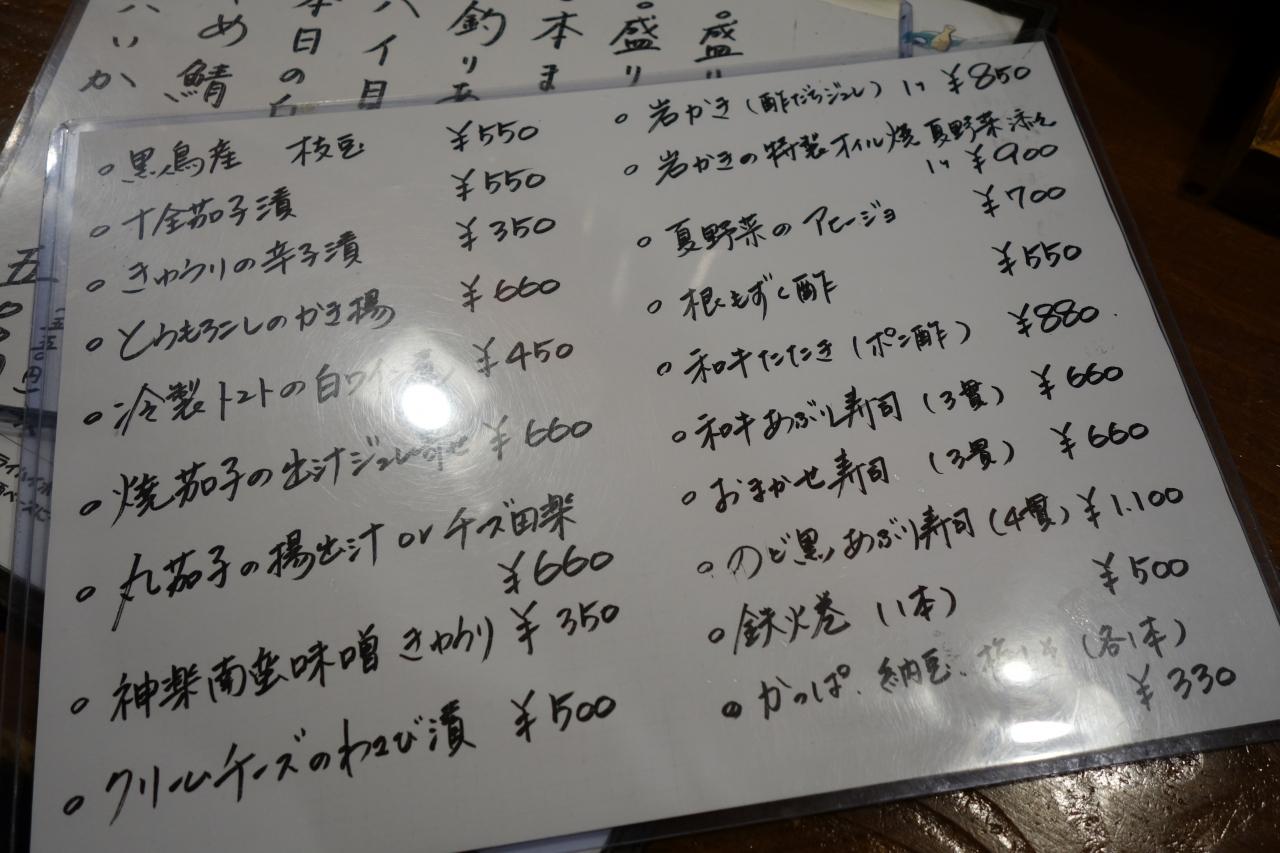 盛り
盛り
本ま
釣りあ
ハイ目
本日の
め鯖
いか
五
黒鳥産 枝豆 ¥550
十全茄子漬 ¥550
きゅうりの辛子漬 ¥350
とうもろこしのかき揚 ¥660
冷製トマトの白ワイン ¥450
焼茄子の出汁ジュレ寄せ ¥660
丸茄子の揚出汁 or チーズ田楽
¥660
神楽南蛮味噌 きゅうり ¥350
クリームチーズのわさび漬 ¥500
岩かき(酢だちジュレ) 1ヶ ¥850
岩かきの特製オイル焼 夏野菜添え
1ヶ ¥900
夏野菜のアヒージョ ¥700
根もずく酢 ¥550
和牛たたき(ポン酢) ¥880
和牛あぶり寿司(3貫) ¥660
おまかせ寿司(3貫) ¥660
のど黒あぶり寿司(4貫) ¥1.100
鉄火巻(1本) ¥500
かっぱ、納豆、梅しそ(各1本)
¥330